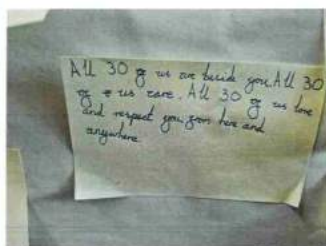 All 30 of us are beside you. All 30
of e us care. All 30 of us love
and respect you from here and
anywhere